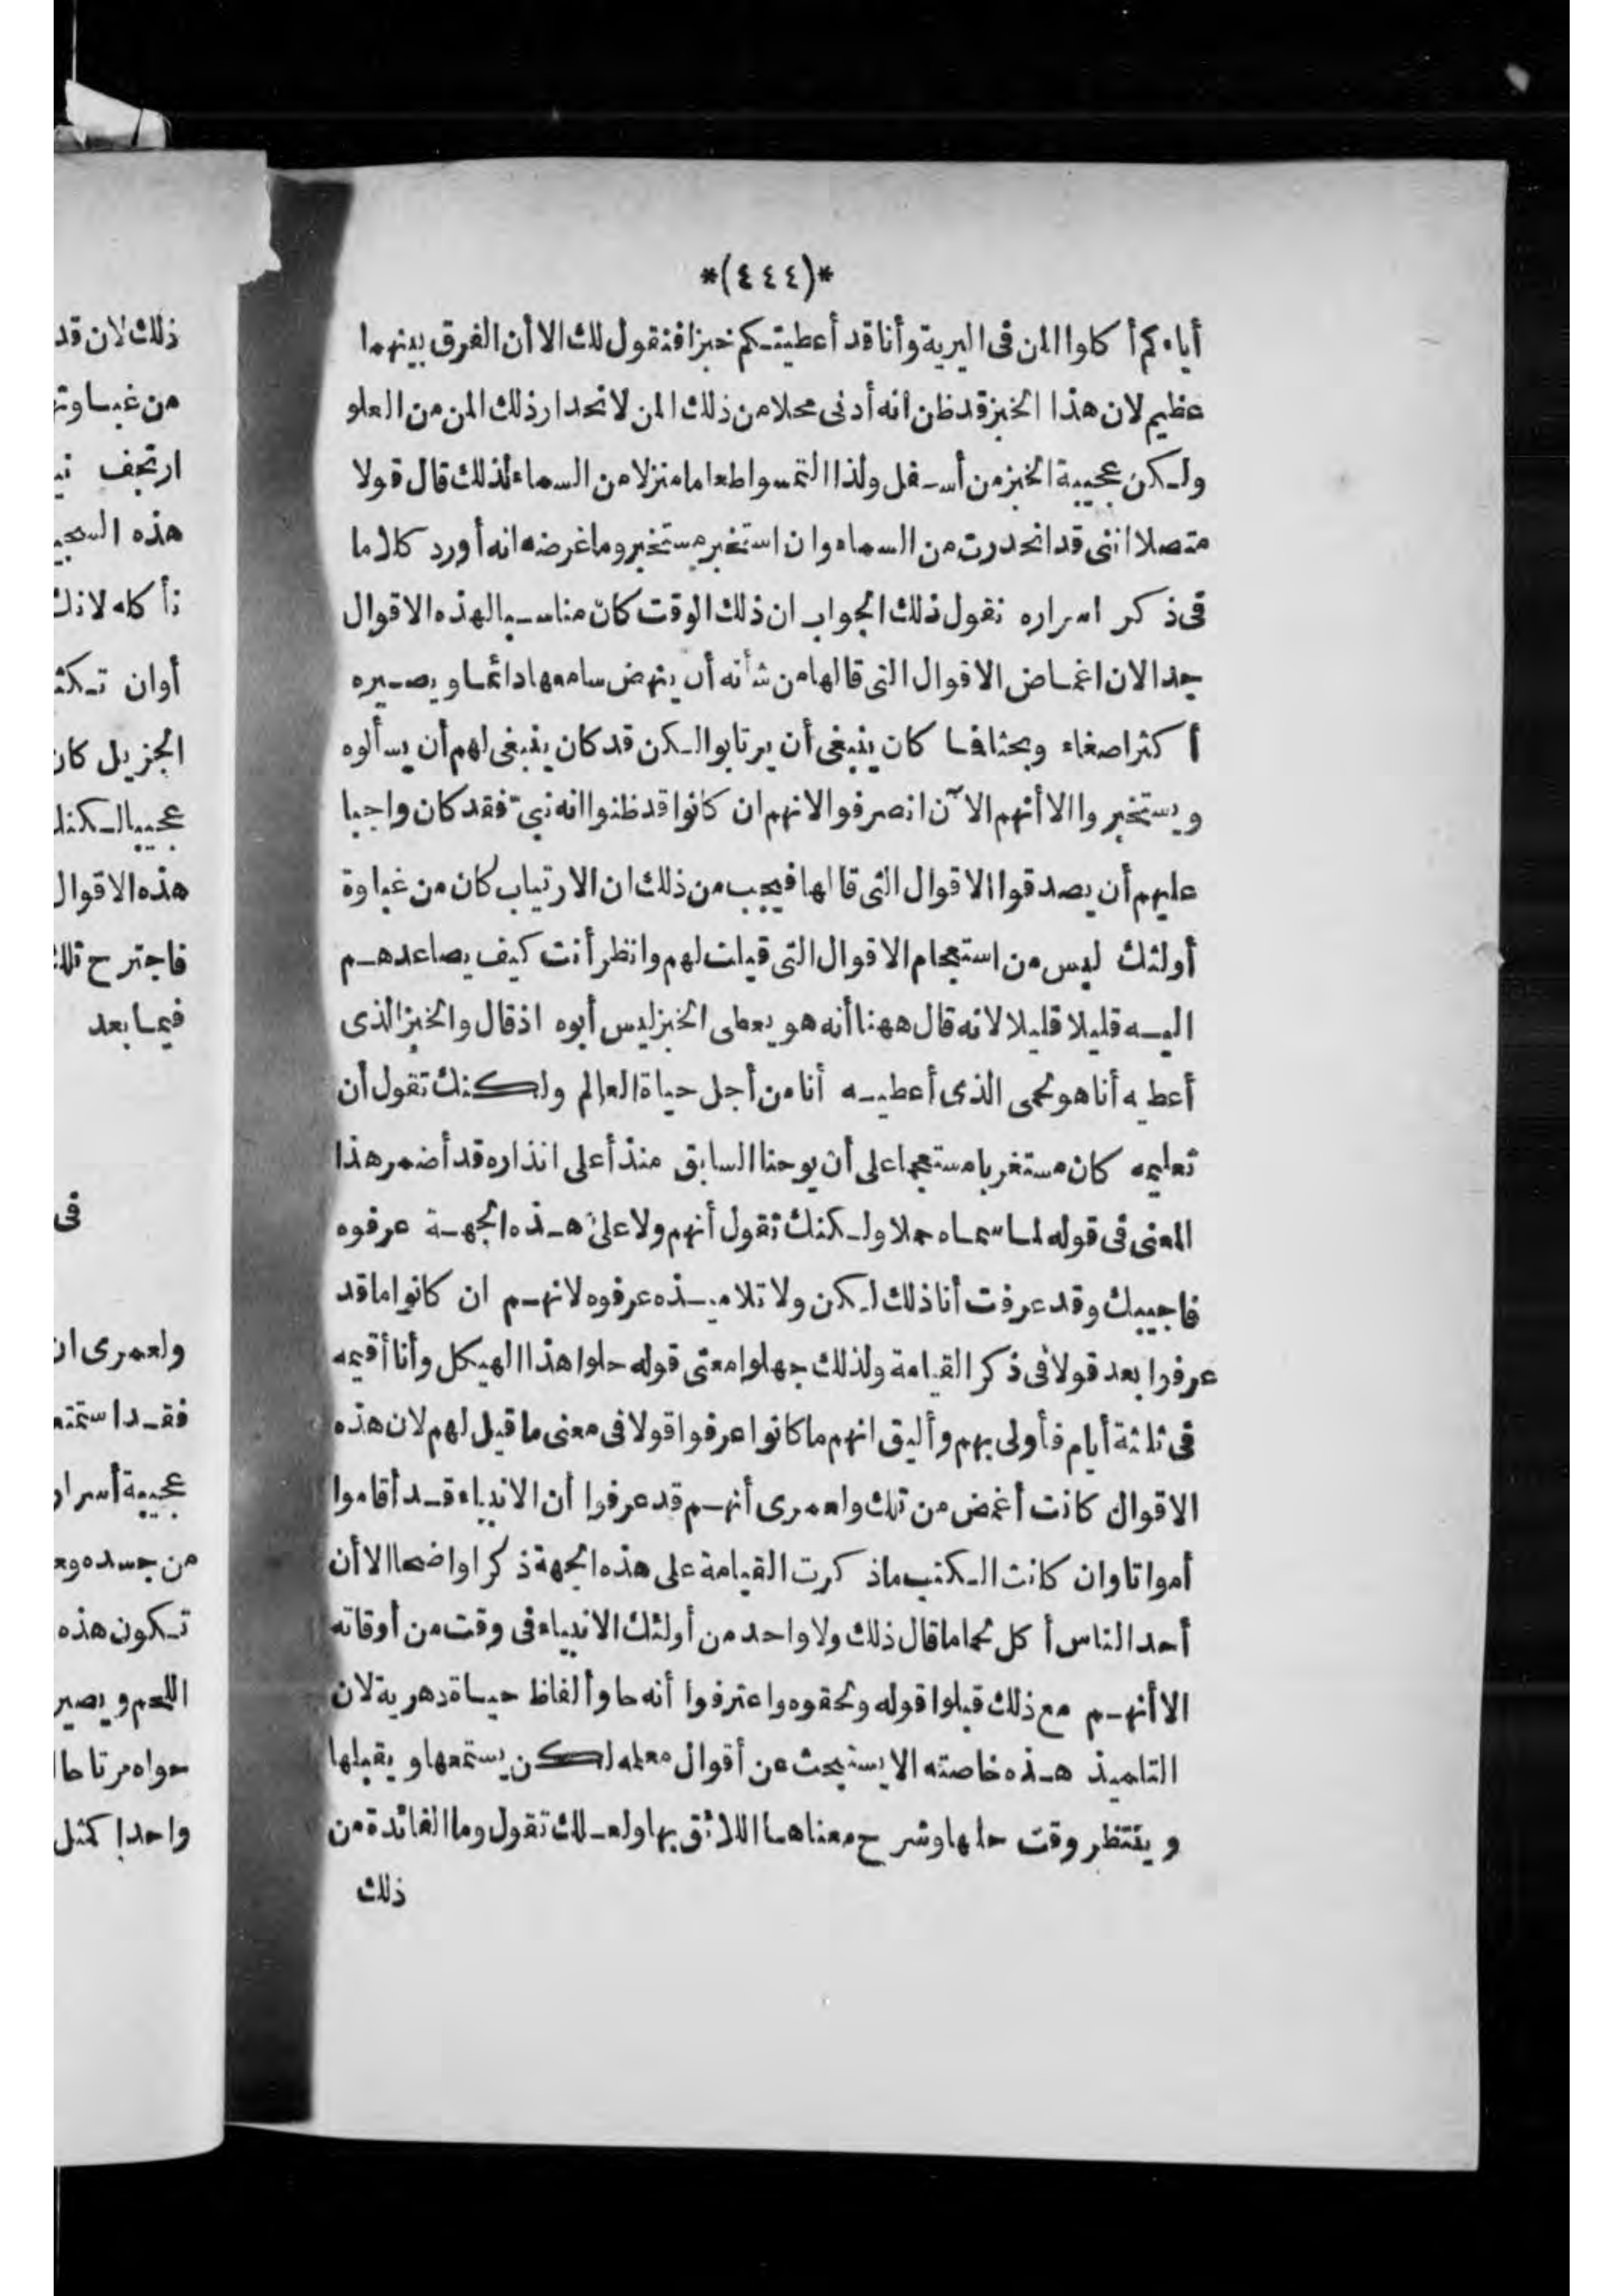 *(٤٤٤)*
أباءكم أكلوا المن فى البرية وأنا قد أعطيتكم خبزا فنقول لك الا أن الفرق بينهما
عظيم لان هذا الخبز قد ظن انه أدنى محلا من ذلك المن لانحدار ذلك المن من العلو
ولكن عجيبة الخبز من أسفل ولذا التمسوا طعاما منزلا من السماء لذلك قال قولا
متصلا اننى قد انحدرت من السماء وان استخبر مستخبر وما غرضه انه أورد كلاما
فى ذكر اسراره نقول ذلك الجواب ان ذلك الوقت كان مناسبا لهذه الاقوال
جدا لان اغماض الاقوال التى قالها من شأنه أن ينهض سامعها دائما ويصيره
أكثر اصغاء وبحثا فما كان ينبغى أن يرتابوا لكن قد كان ينبغى لهم أن يسألوه
ويستخبروا الا أنهم الآن انصرفوا لانهم ان كانوا قد ظنوا انه نبى فقد كان واجبا
عليهم أن يصدقوا الاقوال التى قالها فيجب من ذلك ان الارتياب كان من غباوة
أولئك ليس من استعجام الاقوال التى قيلت لهم وانظر أنت كيف يصاعدهم
اليه قليلا قليلا لانه قال ههنا أنه هو يعطى الخبز ليس أبوه اذ قال والخبز الذى
أعطيه أنا هو لحمى الذى أعطيه أنا من أجل حياة العالم ولكنك تقول أن
تعليمه كان مستغربا مستعجما على أن يوحنا السابق منذ أعلى انذاره قد أضمر هذا
المعنى فى قوله لما سماه حملا ولكنك تقول أنهم ولا على هذه الجهة عرفوه
فاجيبك وقد عرفت أنا ذلك لكن ولا تلاميذه عرفوه لانهم ان كانوا ما قد
عرفوا بعد قولا فى ذكر القيامة ولذلك جهلوا معنى قوله حلوا هذا الهيكل وأنا أقيمه
فى ثلثة أيام فأولى بهم وأليق انهم ما كانوا عرفوا قولا فى معنى ما قيل لهم لان هذه
الاقوال كانت أغمض من تلك ولعمرى أنهم قد عرفوا أن الانبياء قد أقاموا
أمواتا وان كانت الكتب ما ذكرت القيامة على هذه الجهة ذكرا واضحا الا أن
أحد الناس أكل لحما ما قال ذلك ولا واحد من أولئك الانبياء فى وقت من أوقاته
الا أنهم مع ذلك قبلوا قوله ولحقوه واعترفوا أنه حاو ألفاظ حياة دهرية لان
التلميذ هذه خاصته الا يستبحث عن أقوال معلمه لكن يستمعها ويقبلها
وينتظر وقت حلها وشرح معناها اللائق بها ولعلك تقول وما الفائدة من
ذلك
ذلك لان قد
ارتجف
هذه
أوان
الجزيل كان
هذه الاقوال
فاجترح تلك
فيما بعد
فى
ولعمرى ان
عجيبة أسرار
من جسده
تكون هذه
اللحم ويصير
واحدا كمثل